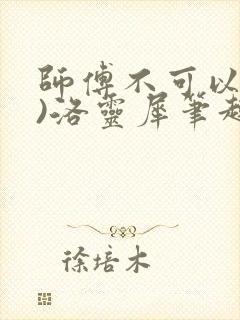 師傅不可以
)洛靈犀筆趣
徐培木